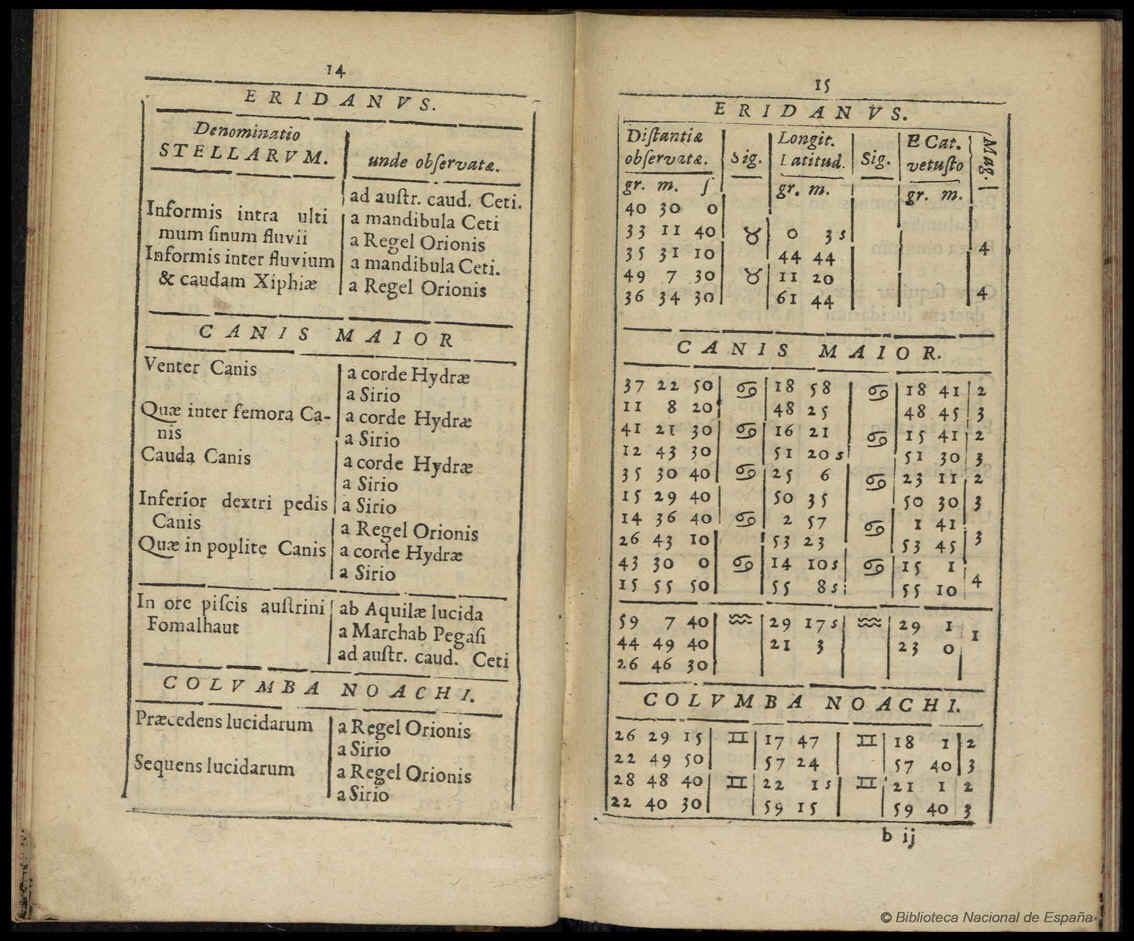 14
ERIDANVS.
Denominatio
STELLARVM.
unde observatæ.
ad austr. caud. Ceti.
Informis intra ulti
a mandibula Ceti
mum sinum fluvii
a Regel Orionis
Informis inter fluvium
a mandibula Ceti.
& caudam Xiphiæ
a Regel Orionis
CANIS MAIOR
Venter Canis
a corde Hydræ
a Sirio
Quæ inter femora Ca-
a corde Hydræ
nis
a Sirio
Cauda Canis
a corde Hydræ
a Sirio
Inferior dextri pedis
a Sirio
Canis
a Regel Orionis
Quæ in poplite Canis
a corde Hydræ
a Sirio
In ore piscis austrini
ab Aquilæ lucida
Fomalhaut
a Marchab Pegasi
ad austr. caud. Ceti
COLVMBA NOACHI.
Præcedens lucidarum
a Regel Orionis
a Sirio
Sequens lucidarum
a Regel Orionis
a Sirio
15
ERIDANVS.
Distantiæ Longit. E Cat. Mag.
observatæ. Sig. Latitud. Sig. vetusto
gr. m. ſ gr. m. gr. m.
40 30 0
33 11 40 ♉ 0 3 s
35 31 10 44 44 4
49 7 30 ♉ 11 20
36 34 30 61 44 4
CANIS MAIOR.
37 22 50 ♋ 18 58 ♋ 18 41 2
11 8 20 48 25 48 45 3
41 21 30 ♋ 16 21 ♋ 15 41 2
12 43 30 51 20 s 51 30 3
35 30 40 ♋ 25 6 ♋ 23 11 2
15 29 40 50 35 50 30 3
14 36 40 ♋ 2 57 ♋ 1 41
26 43 10 53 23 53 45 3
43 30 0 ♋ 14 10 s ♋ 15 1
15 55 50 55 8 s 55 10 4
59 7 40 ♒ 29 17 s ♒ 29 1
44 49 40 21 3 23 0 1
26 46 30
COLVMBA NOACHI.
26 29 15 ♊ 17 47 ♊ 18 1 2
22 49 50 57 24 57 40 3
28 48 40 ♊ 22 1 s ♊ 21 1 2
22 40 30 59 15 59 40 3
b ij
© Biblioteca Nacional de España